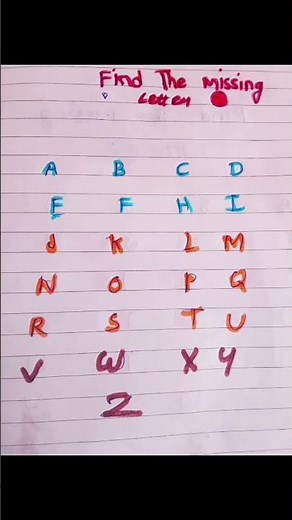 Find The missing
Letter
A B C D
E F H I
J K L M
N O P Q
R S T U
V W X Y
Z